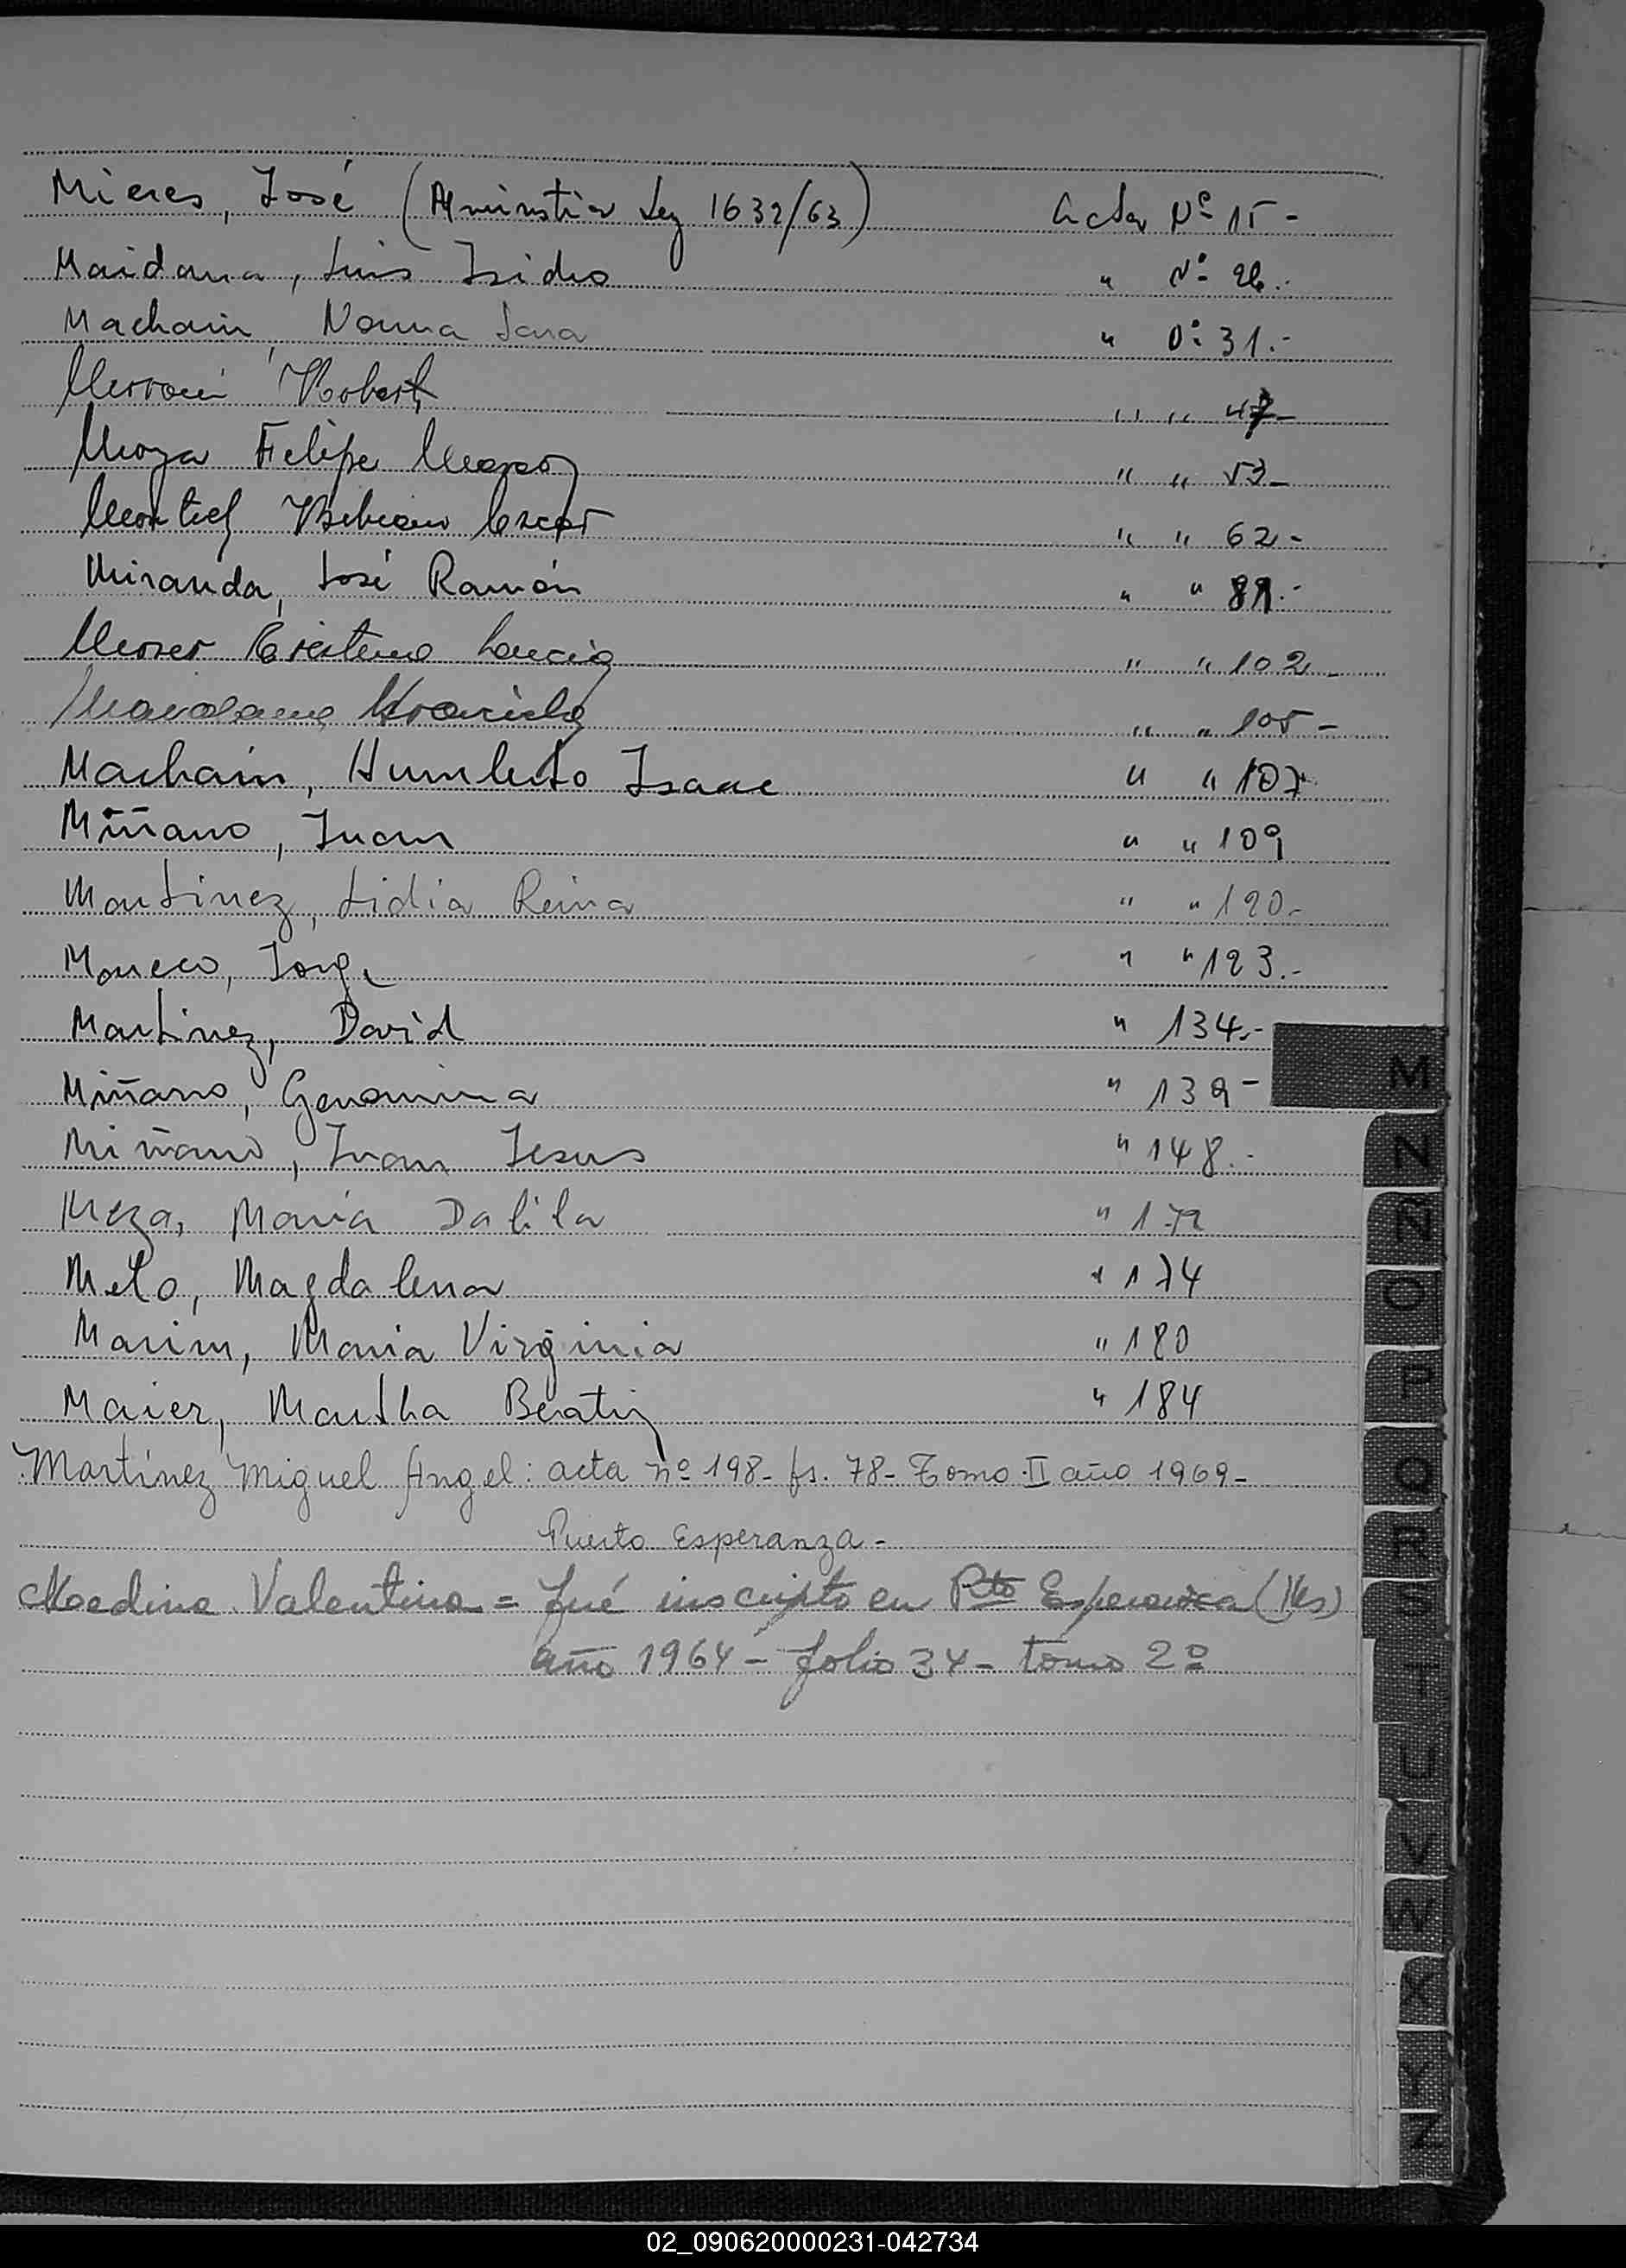 Mieres, José (Aministia Ley 1632/63) Acta Nº 15-
Maidana, Luis Isidro " Nº 26.-
Machain, Norma Sara " Nº 31.-
Robert " " 47-
Moya Felipe " " 53-
Montiel Bibiano Oscar " " 62-
Miranda, José Ramón " " 89.-
Moser Cristina " " 102-
Maidana " " 105-
Machain, Humberto Isaac " " 107
Miñano, Juan " " 109
Martinez, Lidia Reina " " 120.-
Moreco, Jorge " " 123.-
Martinez, David " 134.-
Miñano, Geronima " 139-
Miñano, Juan Jesus " 148.-
Meza, María Dalila " 172
Melo, Magdalena " 174
Marim, Maria Virginia " 180
Maier, Martha Beatriz " 184
Martínez Miguel Angel: acta nº 198- fs. 78- Tomo II año 1969-
Puerto Esperanza-
Medina Valentina = fué inscripto en Pto Esperanza (Mes)
año 1964- folio 34- tomo 2º
M
N
Ñ
O
P
Q
R
S
T
U
V
W
X
Y
Z
02_090620000231-042734